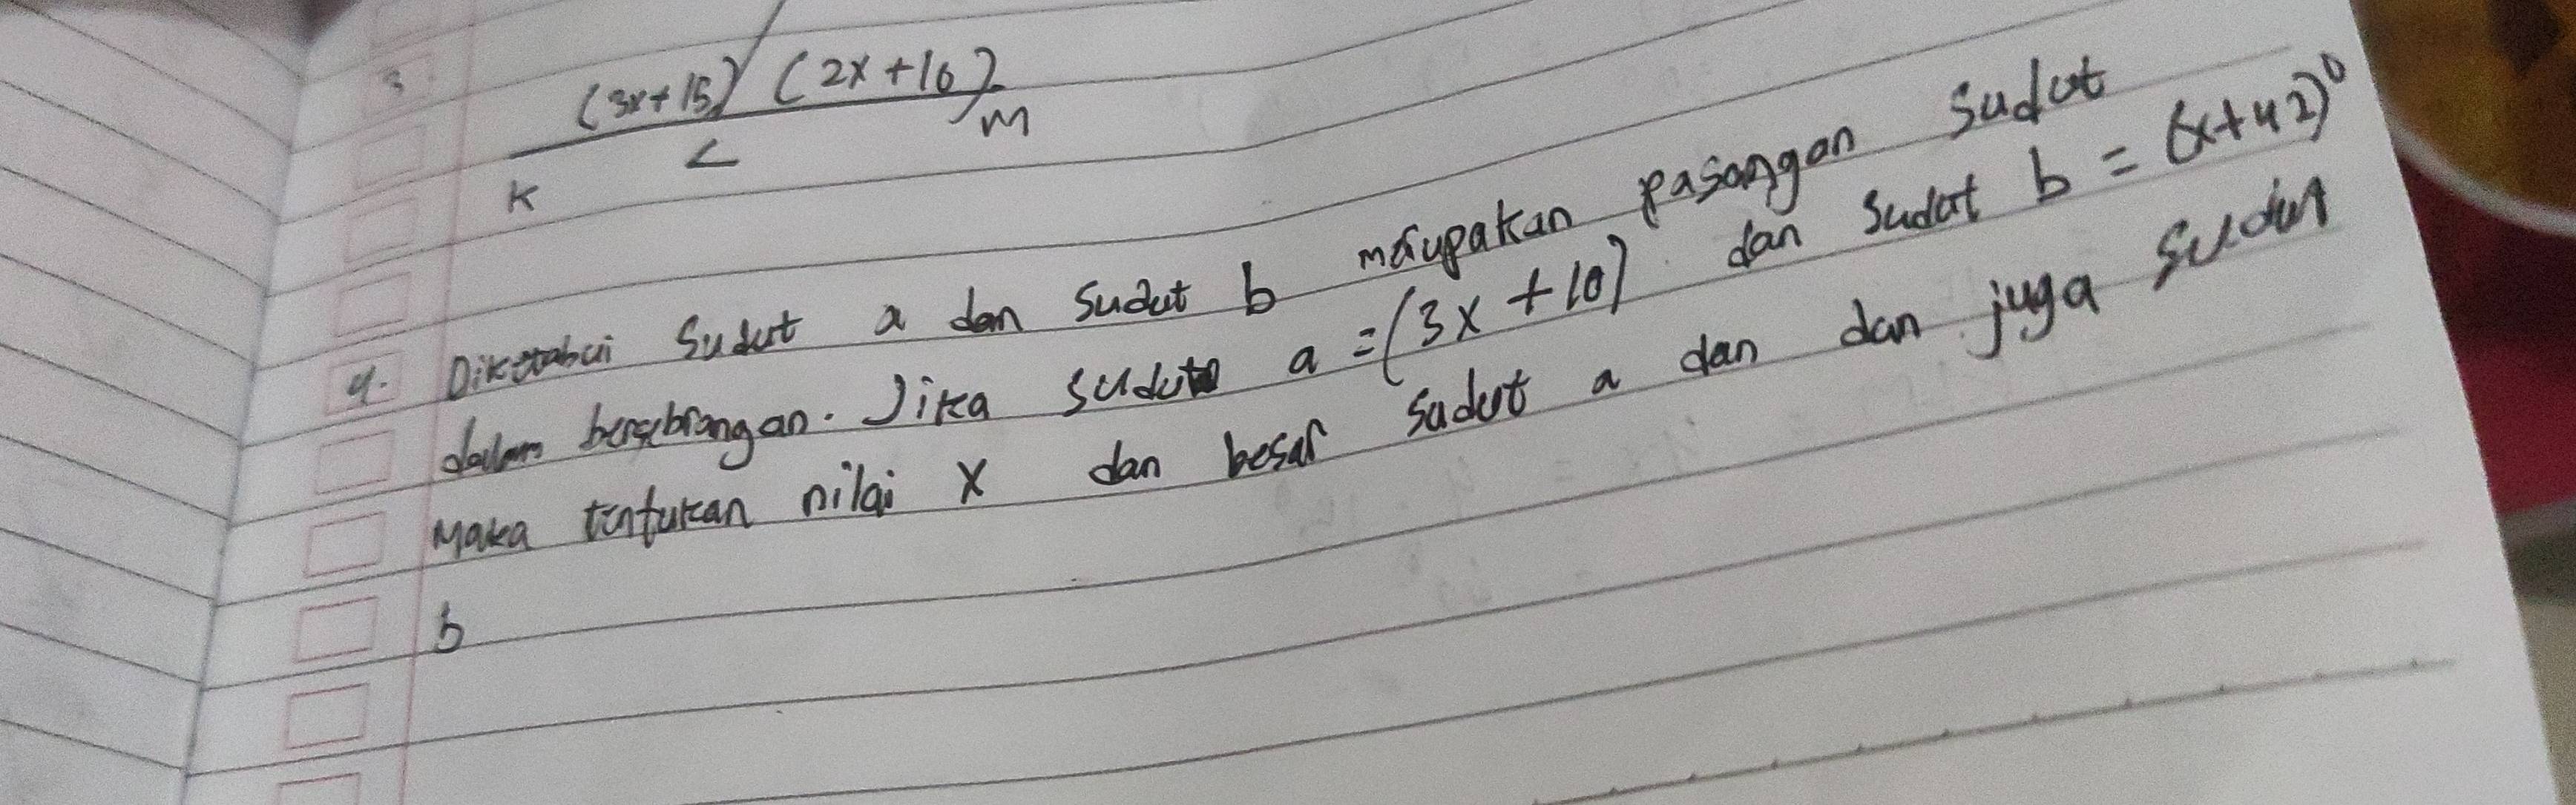 3
(3x+15) (2x+10)
K L M
4. Diketahui Sudut a dan Sudut b merupakan pasangan Sudut
dalam bersebrangan. Jika sudut a = (3x + 10) dan Sudut b = (x+42)⁰
Maka tentukan nilai x dan besar sudut a dan dan juga sudut
b